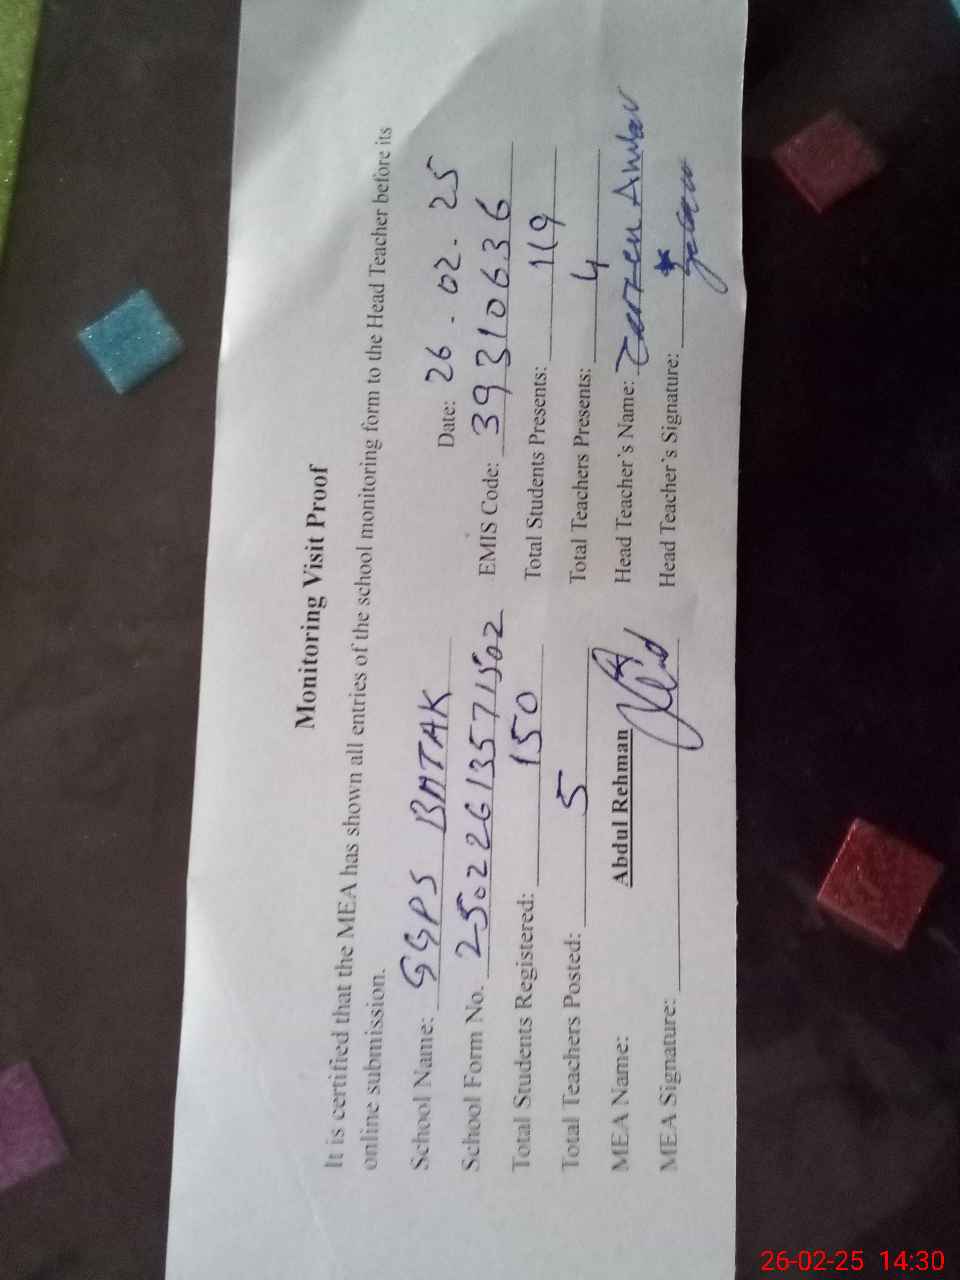 Monitoring Visit Proof
It is certified that the MEA has shown all entries of the school monitoring form to the Head Teacher before its
online submission.
Date: 26-02-25
School Name: GGPS BHTAK
School Form No. 25022613571502 EMIS Code: 39310636
Total Students Registered: 150 Total Students Presents: 119
Total Teachers Posted: 5 Total Teachers Presents: 4
MEA Name: Abdul Rehman Head Teacher's Name: Anwar
MEA Signature: Head Teacher's Signature:
26-02-25 14:30